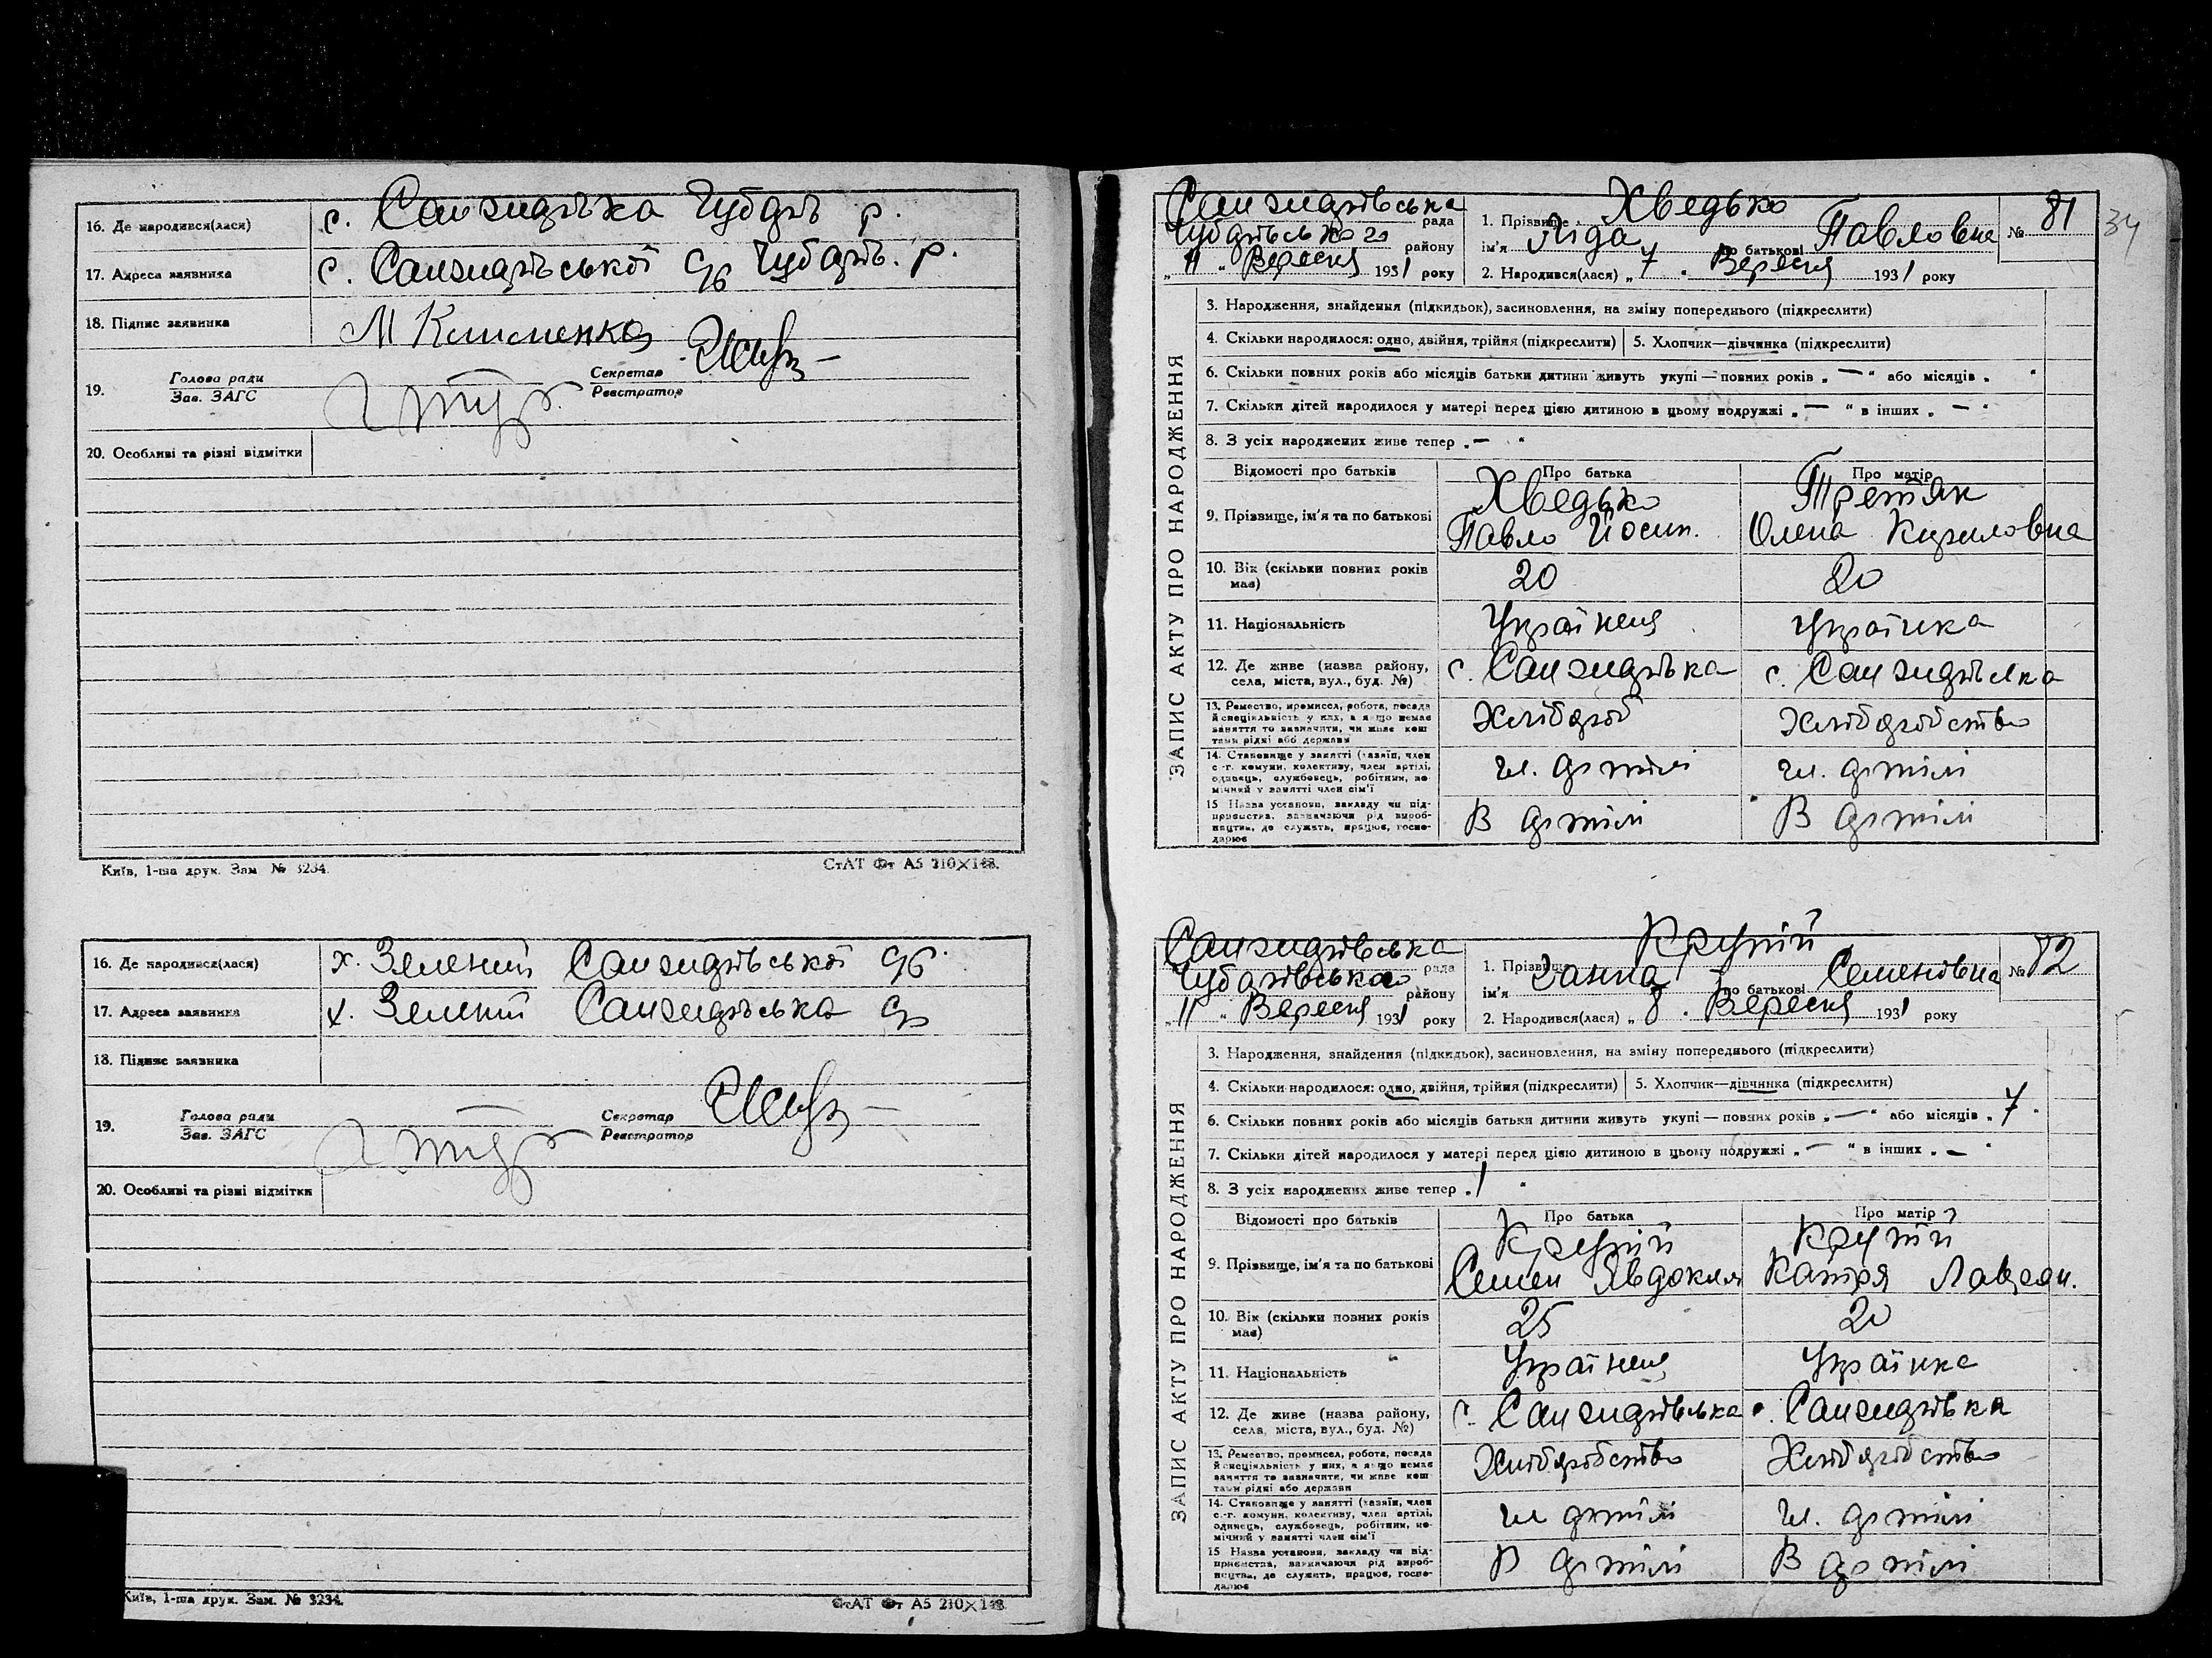 16. Де народився(лася) с. Санжидрівка Чубарів р.
17. Адреса заявника с. Санжидрівської с/р Чубарів. р.
18. Підпис заявника М Клименко
19. Голова ради Зав. ЗАГС Секретар Реєстратор
20. Особливі та різні відмітки
Київ, 1-ша друк. Зам № 3234. СтАТ Фт А5 210×148.
16. Де народився(лася) х. Зелений Санжидрівської с/р
17. Адреса заявника х. Зелений Санжидрівська с/р
18. Підпис заявника
19. Голова ради Зав. ЗАГС Секретар Реєстратор
20. Особливі та різні відмітки
Київ, 1-ша друк. Зам. № 3234. СтАТ Фт А5 210×148
34
ЗАПИС АКТУ ПРО НАРОДЖЕННЯ
Санжидрівська рада
Чубарівського району
„11“ Вересня 1931 року
1. Прізвище Хведько
ім'я Ліда по батькові Павловна № 81
2. Народився(лася) „7“ Вересня 1931 року
3. Народження, знайдення (підкидьок), засиновлення, на зміну попереднього (підкреслити)
4. Скільки народилося: одно, двійня, трійня (підкреслити) 5. Хлопчик—дівчинка (підкреслити)
6. Скільки повних років або місяців батьки дитини живуть укупі — повних років „—“ або місяців „ “
7. Скільки дітей народилося у матері перед цією дитиною в цьому подружжі „—“ в інших „—“
8. З усіх народжених живе тепер „—“
Відомості про батьків Про батька Про матір
9. Прізвище, ім'я та по батькові Хведько Павло Йосип. Третяк Олена Кириловна
10. Вік (скільки повних років має) 20 20
11. Національність Українец Українка
12. Де живе (назва району, села, міста, вул., буд. №) с. Санжидрівка с. Санжидрівка
13. Ремество, промисел, робота, посада й спеціяльність у них, а якщо немає заняття то зазначити, чи живе коштами рідні або держави Хлібороб Хліборобство
14. Становище у занятті (хазяїн, член с.-г. комуни, колективу, член артілі, одинець, службовець, робітник, помічний у занятті член сім'ї чл. артілі чл. артілі
15 Назва установи, закладу чи підприємства, зазначаючи рід виробництва, де служить, працює, господарює В артілі В артілі
ЗАПИС АКТУ ПРО НАРОДЖЕННЯ
Санжидрівська рада
Чубарівська району
„11“ Вересня 1931 року
1. Прізвище Крупій
ім'я Ганна по батькові Семеновна № 82
2. Народився(лася) „8“ Вересня 1931 року
3. Народження, знайдення (підкидьок), засиновлення, на зміну попереднього (підкреслити)
4. Скільки народилося: одно, двійня, трійня (підкреслити) 5. Хлопчик—дівчинка (підкреслити)
6. Скільки повних років або місяців батьки дитини живуть укупі — повних років „—“ або місяців „7“
7. Скільки дітей народилося у матері перед цією дитиною в цьому подружжі „—“ в інших „—“
8. З усіх народжених живе тепер „1“
Відомості про батьків Про батька Про матір
9. Прізвище, ім'я та по батькові Крупій Семен Явдоким Крупій Катря
10. Вік (скільки повних років має) 25 20
11. Національність Українец Українка
12. Де живе (назва району, села, міста, вул., буд. №) с. Санжидрівська с. Санжидрівка
13. Ремество, промисел, робота, посада й спеціяльність у них, а якщо немає заняття то зазначити, чи живе коштами рідні або держави Хліборобство Хліборобство
14. Становище у занятті (хазяїн, член с.-г. комуни, колективу, член артілі, одинець, службовець, робітник, помічний у занятті член сім'ї чл артілі чл. артілі
15 Назва установи, закладу чи підприємства, зазначаючи рід виробництва, де служить, працює, господарює В артілі В артілі